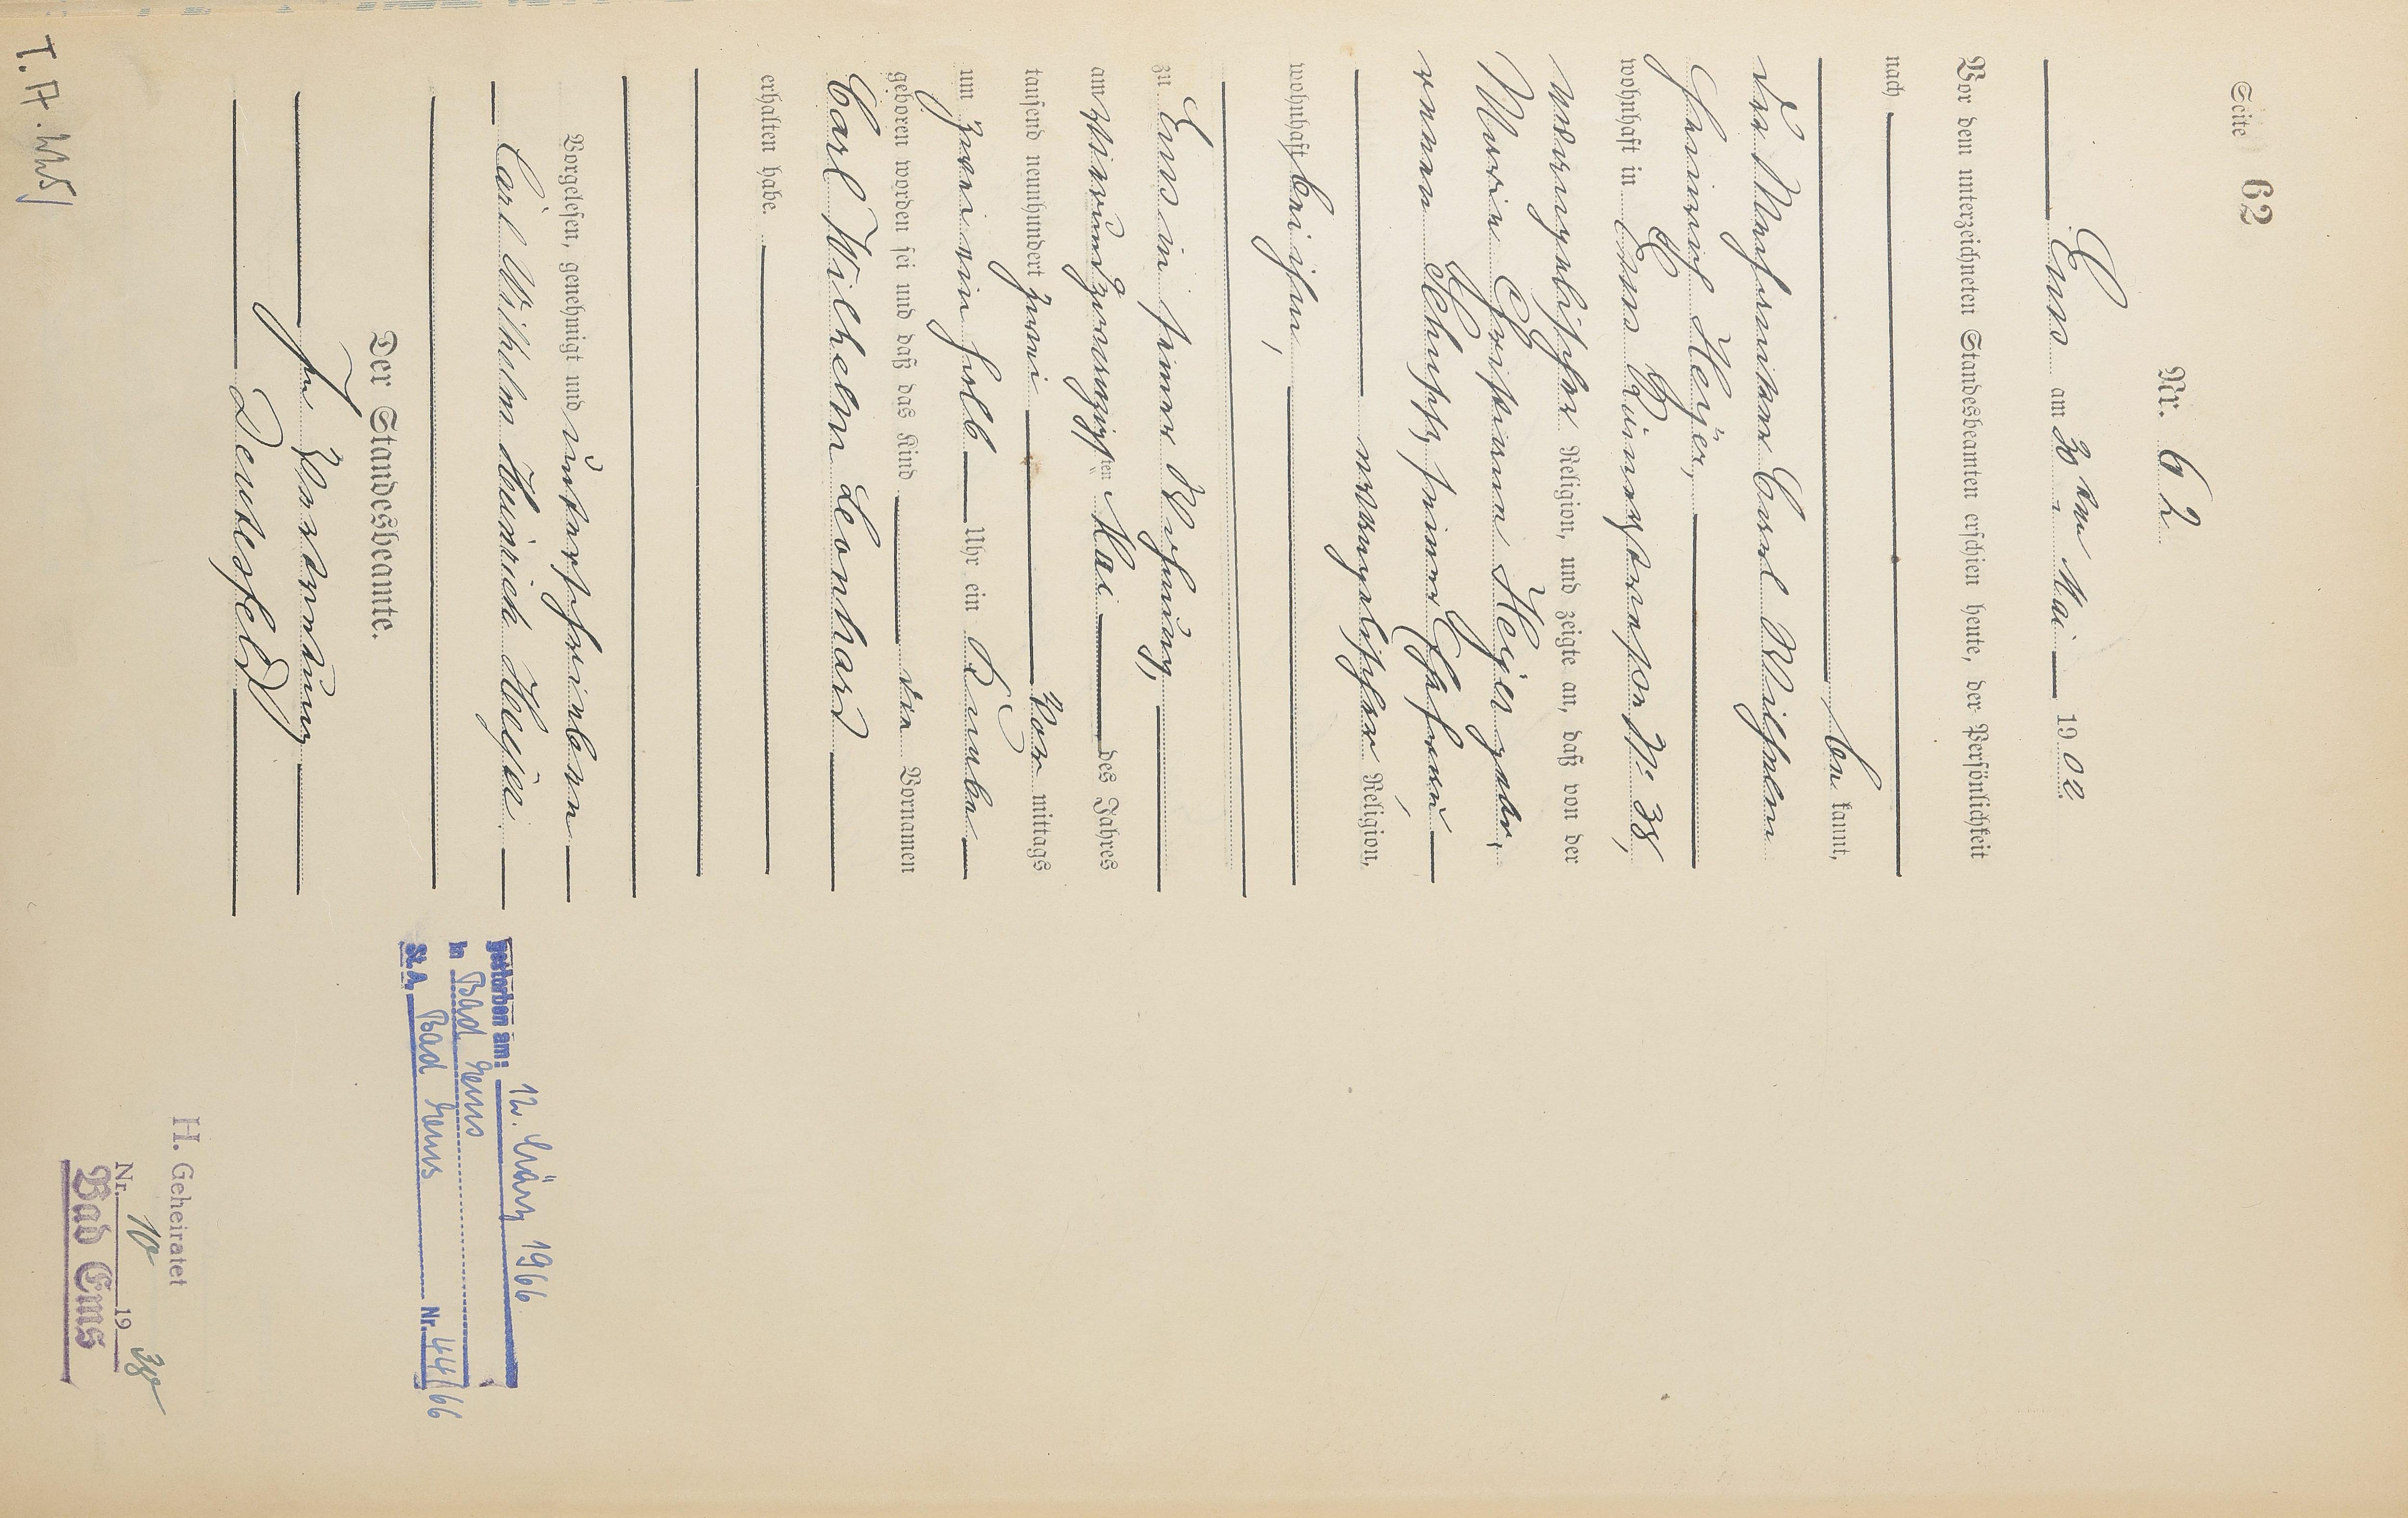 Seite 62
Nr. 62
Ems am 30ten Mai 1902.
Vor dem unterzeichneten Standesbeamten erschien heute, der Persönlichkeit
nach
be kannt,
der Maschinist Carl Wilhelm
Heinrich Heyer,
wohnhaft in Ems No. 38,
evangelischer Religion, und zeigte an, daß von der
Marie Christiane Heyer gebo-
renen Schupp, seiner Ehefrau,
evangelischer Religion,
wohnhaft bei ihm,
zu Ems in seiner Wohnung,
am vierundzwanzigsten Mai des Jahres
tausend neunhundert zwei Vor mittags
um zwei ein halb Uhr ein Knabe
geboren worden sei und daß das Kind die Vornamen
Carl Wilhelm Leonhard
erhalten habe.
Vorgelesen, genehmigt und unterschrieben
Carl Wilhelm Heinrich Heyer.
Der Standesbeamte.
In Vertretung
Deutesfeld
gestorben am: 12. März 1966
in Bad Ems
St.A. Bad Ems Nr. 44/66
H. Geheiratet
Nr. 10 19 38
Bad Ems